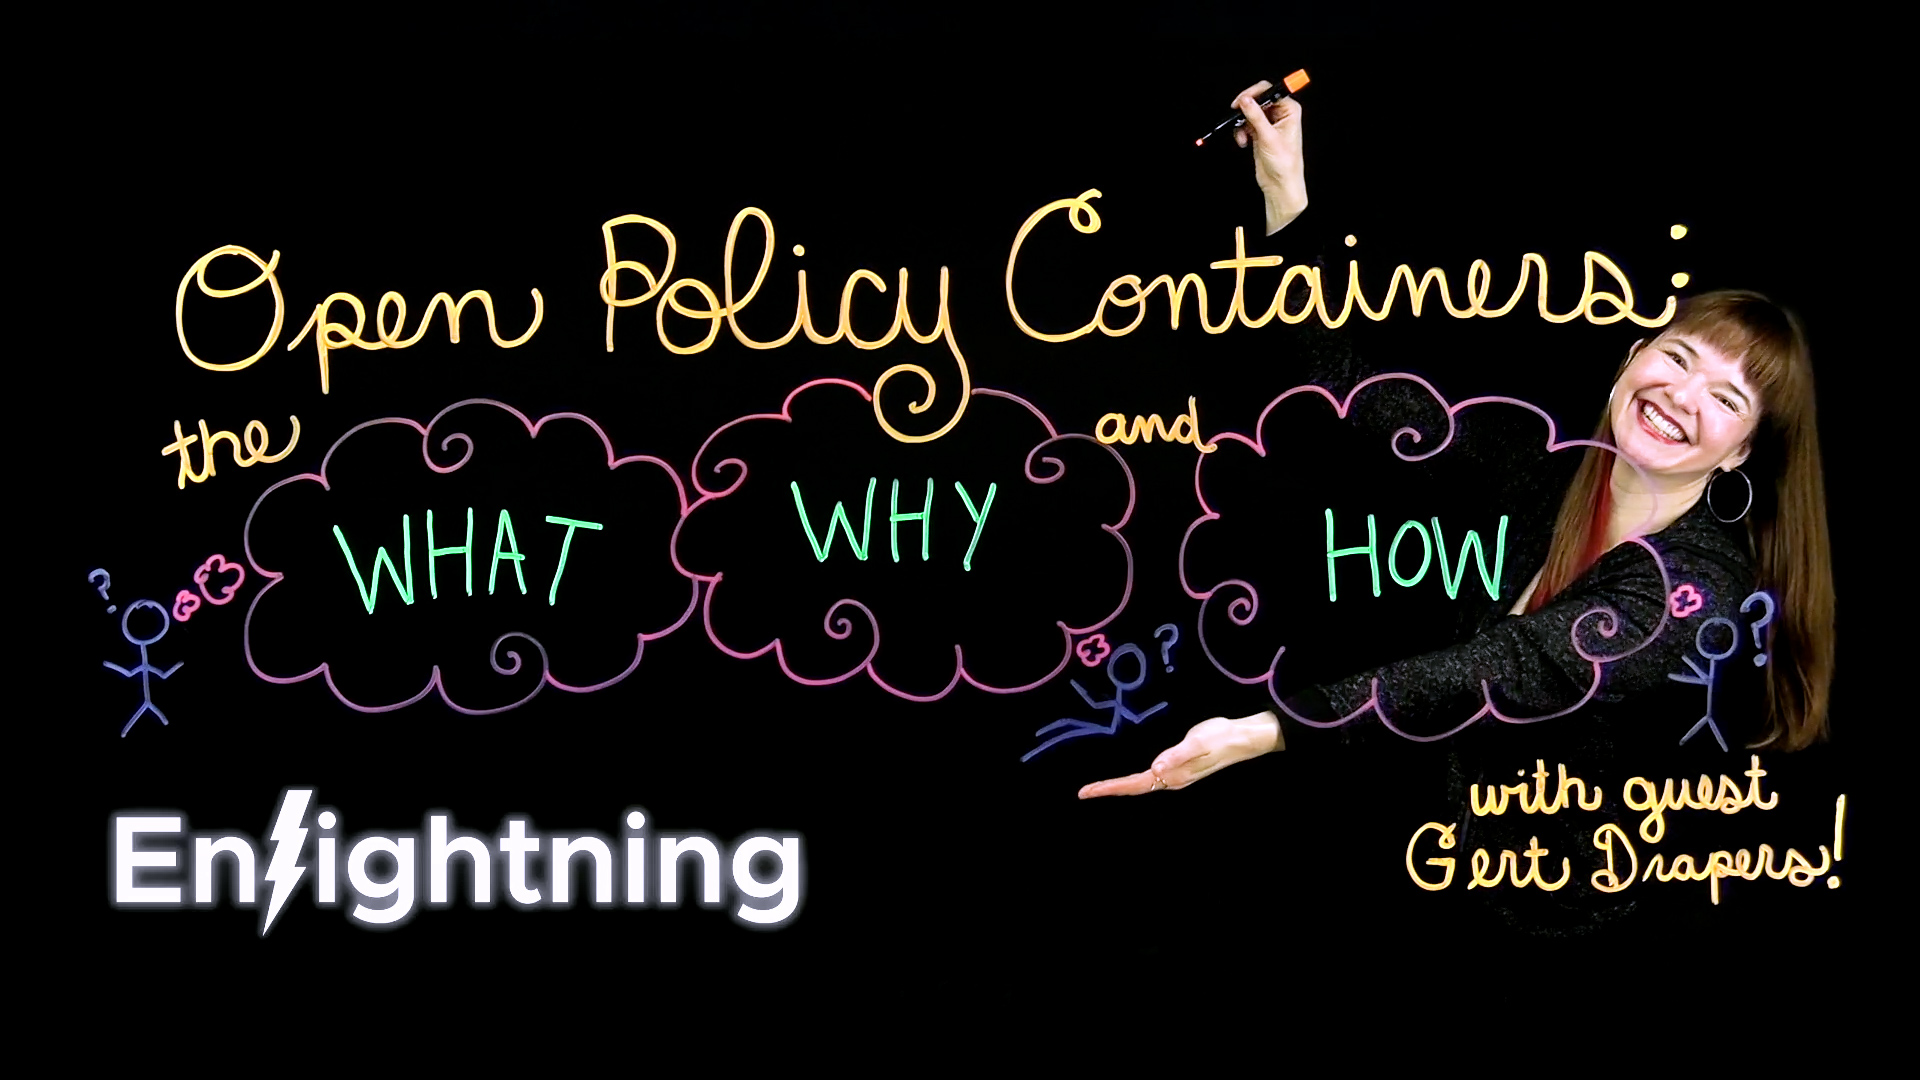 Open Policy Containers:
the WHAT WHY and HOW
? ? ?
with guest
Gert Drapers!
Enlightning